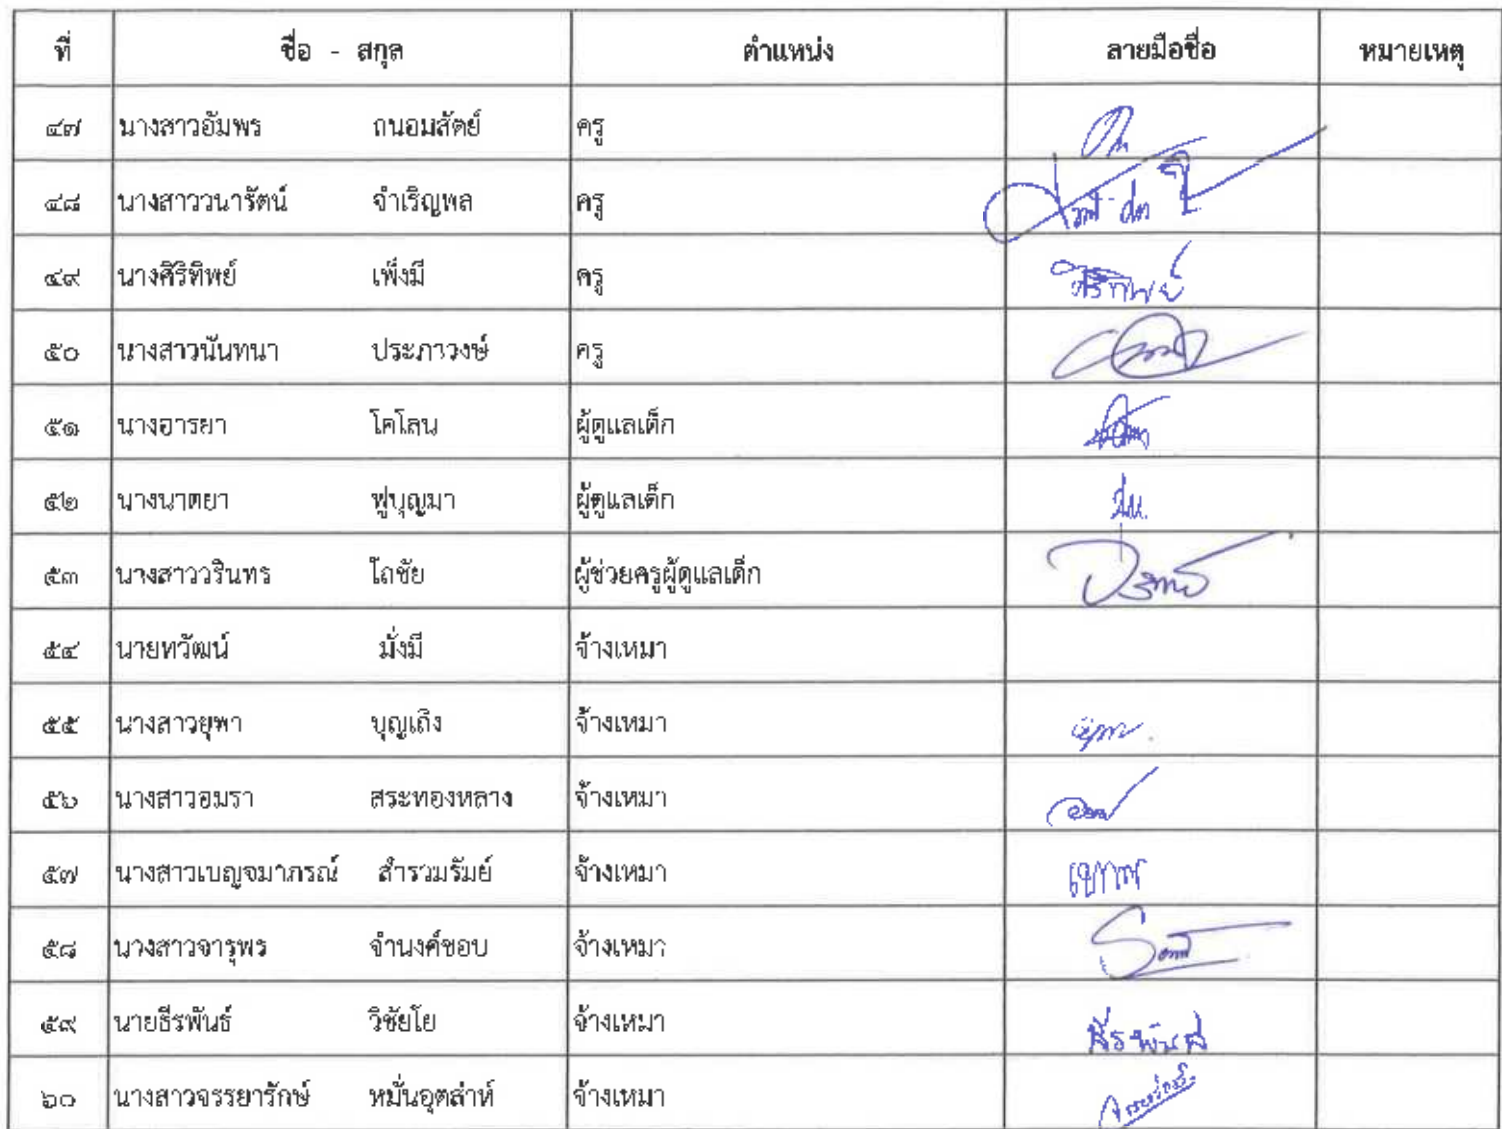 ที่ ชื่อ - สกุล ตำแหน่ง ลายมือชื่อ หมายเหตุ
๔๗ นางสาวอัมพร ถนอมสัตย์ ครู
๔๘ นางสาววนารัตน์ จำเริญพล ครู
๔๙ นางศิริทิพย์ เพ็งมี ครู ศิริทิพย์
๕๐ นางสาวนันทนา ประภาวงษ์ ครู
๕๑ นางอารยา โคโลน ผู้ดูแลเด็ก
๕๒ นางนาตยา ฟูบุญมา ผู้ดูแลเด็ก
๕๓ นางสาววรินทร ไถชัย ผู้ช่วยครูผู้ดูแลเด็ก
๕๔ นายทวัฒน์ มั่งมี จ้างเหมา
๕๕ นางสาวยุพา บุญเถิง จ้างเหมา ยุพา
๕๖ นางสาวอมรา สระทองหลาง จ้างเหมา
๕๗ นางสาวเบญจมาภรณ์ สำรวมรัมย์ จ้างเหมา
๕๘ นวงสาวจารุพร จำนงค์ชอบ จ้างเหมา
๕๙ นายธีรพันธ์ วิชัยโย จ้างเหมา ธีรพันธ์
๖๐ นางสาวจรรยารักษ์ หมั่นอุตส่าห์ จ้างเหมา